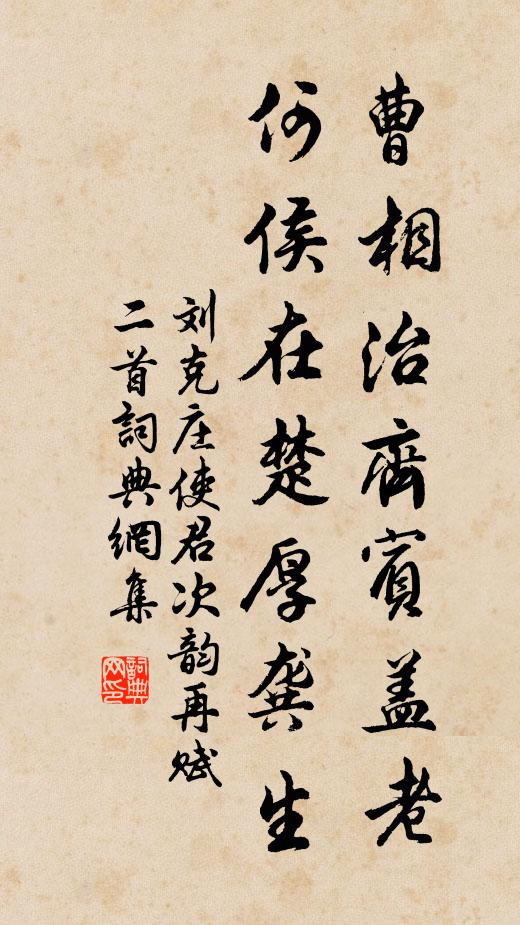 曹相治齊賓盖老
何侯在楚厚龔生
刘克庄使君次韵再赋
二首詞典網集
詞典网印